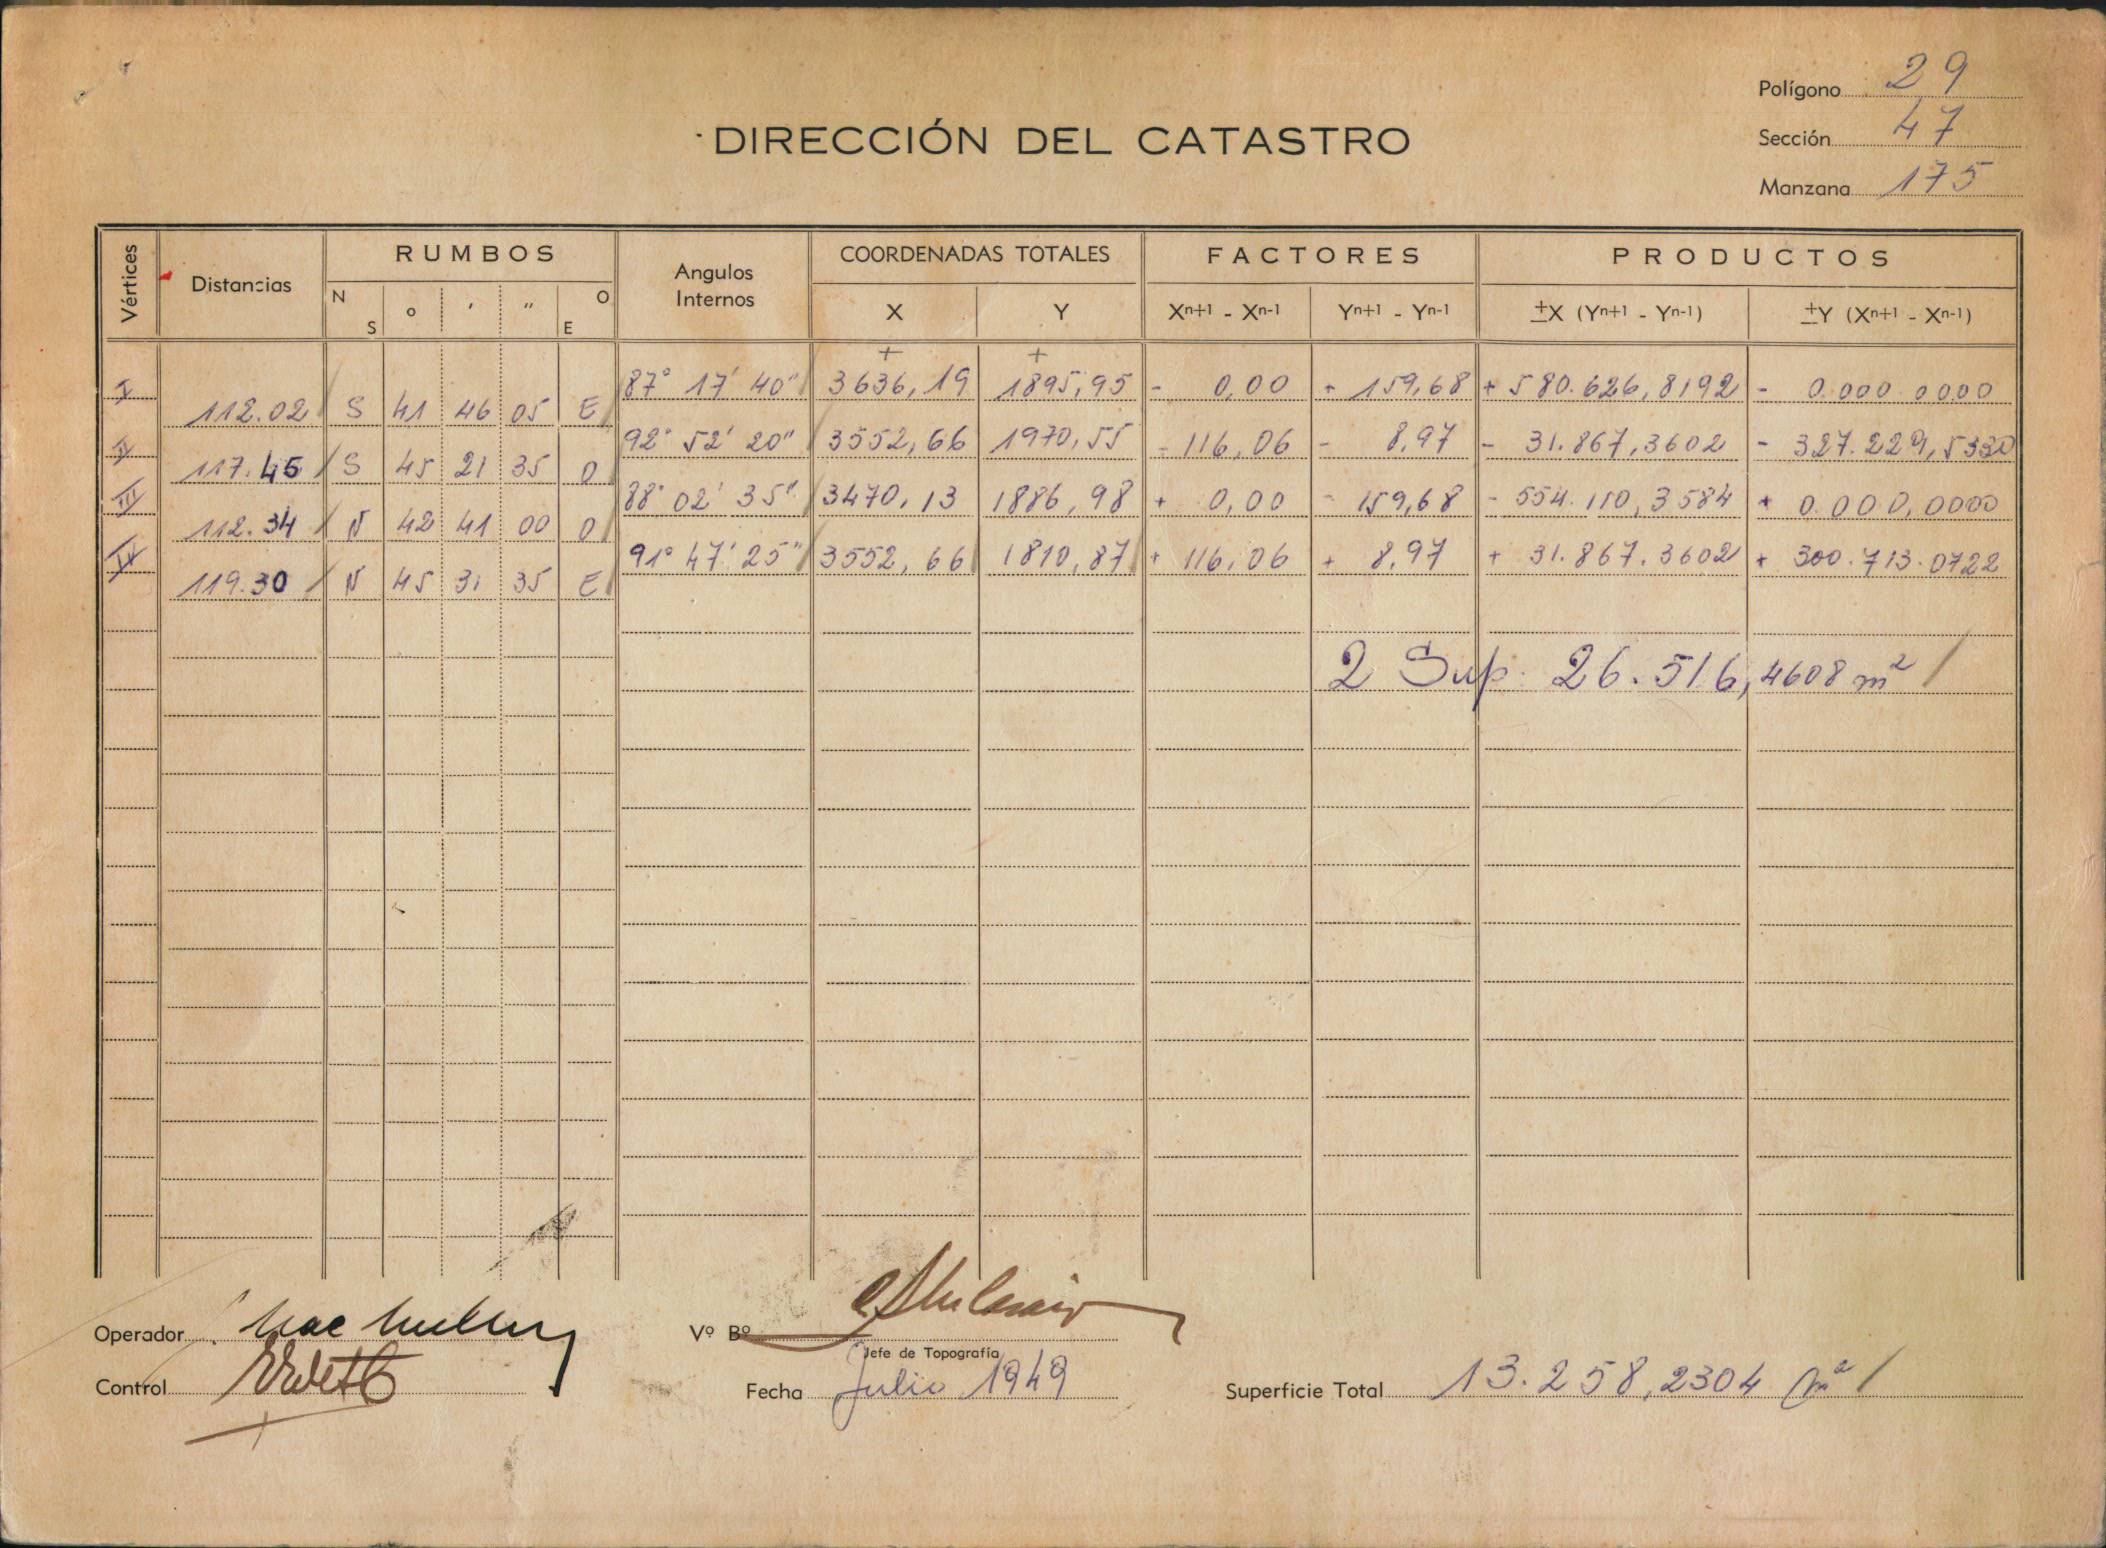 Polígono 29
DIRECCIÓN DEL CATASTRO
Sección 47
Manzana 175
Vértices Distancias RUMBOS Angulos Internos COORDENADAS TOTALES FACTORES PRODUCTOS
N S ° ' " O E X Y Xn+1 - Xn-1 Yn+1 - Yn-1 ±X (Yn+1 - Yn-1) ±Y (Xn+1 - Xn-1)
+ +
I 87° 17' 40" 3636,19 1895,95 - 0,00 + 159,68 + 580.626,8192 - 0.000.0000
112.02 S 41 46 05 E
II 92° 52' 20" 3552,66 1970,55 - 116,06 - 8,97 - 31.867,3602 - 327.229,5330
117.45 S 45 21 35 O
III 88° 02' 35" 3470,13 1886,98 + 0,00 - 159,68 - 554.110,3584 + 0.000,0000
112.34 N 42 41 00 O
IV 91° 47' 25" 3552,66 1810,87 + 116,06 + 8,97 + 31.867.3602 + 300.713.0722
119.30 N 45 31 35 E
2 Sup. 26.516,4608 m²
Operador
Vº Bº
Jefe de Topografía
Control
Fecha Julio 1949
Superficie Total 13.258,2304 m²